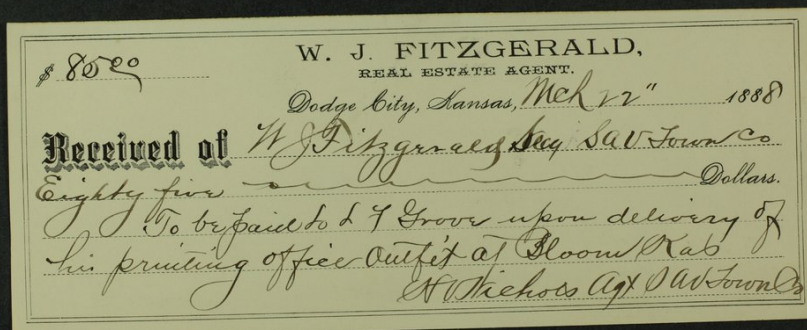 W. J. FITZGERALD,
REAL ESTATE AGENT.
$ 85 00
Dodge City, Kansas, Mch 22" 1888
Received of W J Fitzgerald Secy S A V Town Co
Eighty five Dollars.
To be paid to L F Grove upon delivery of
his printing office outfit at Bloom Kas
Nichols Agt S A V Town Co